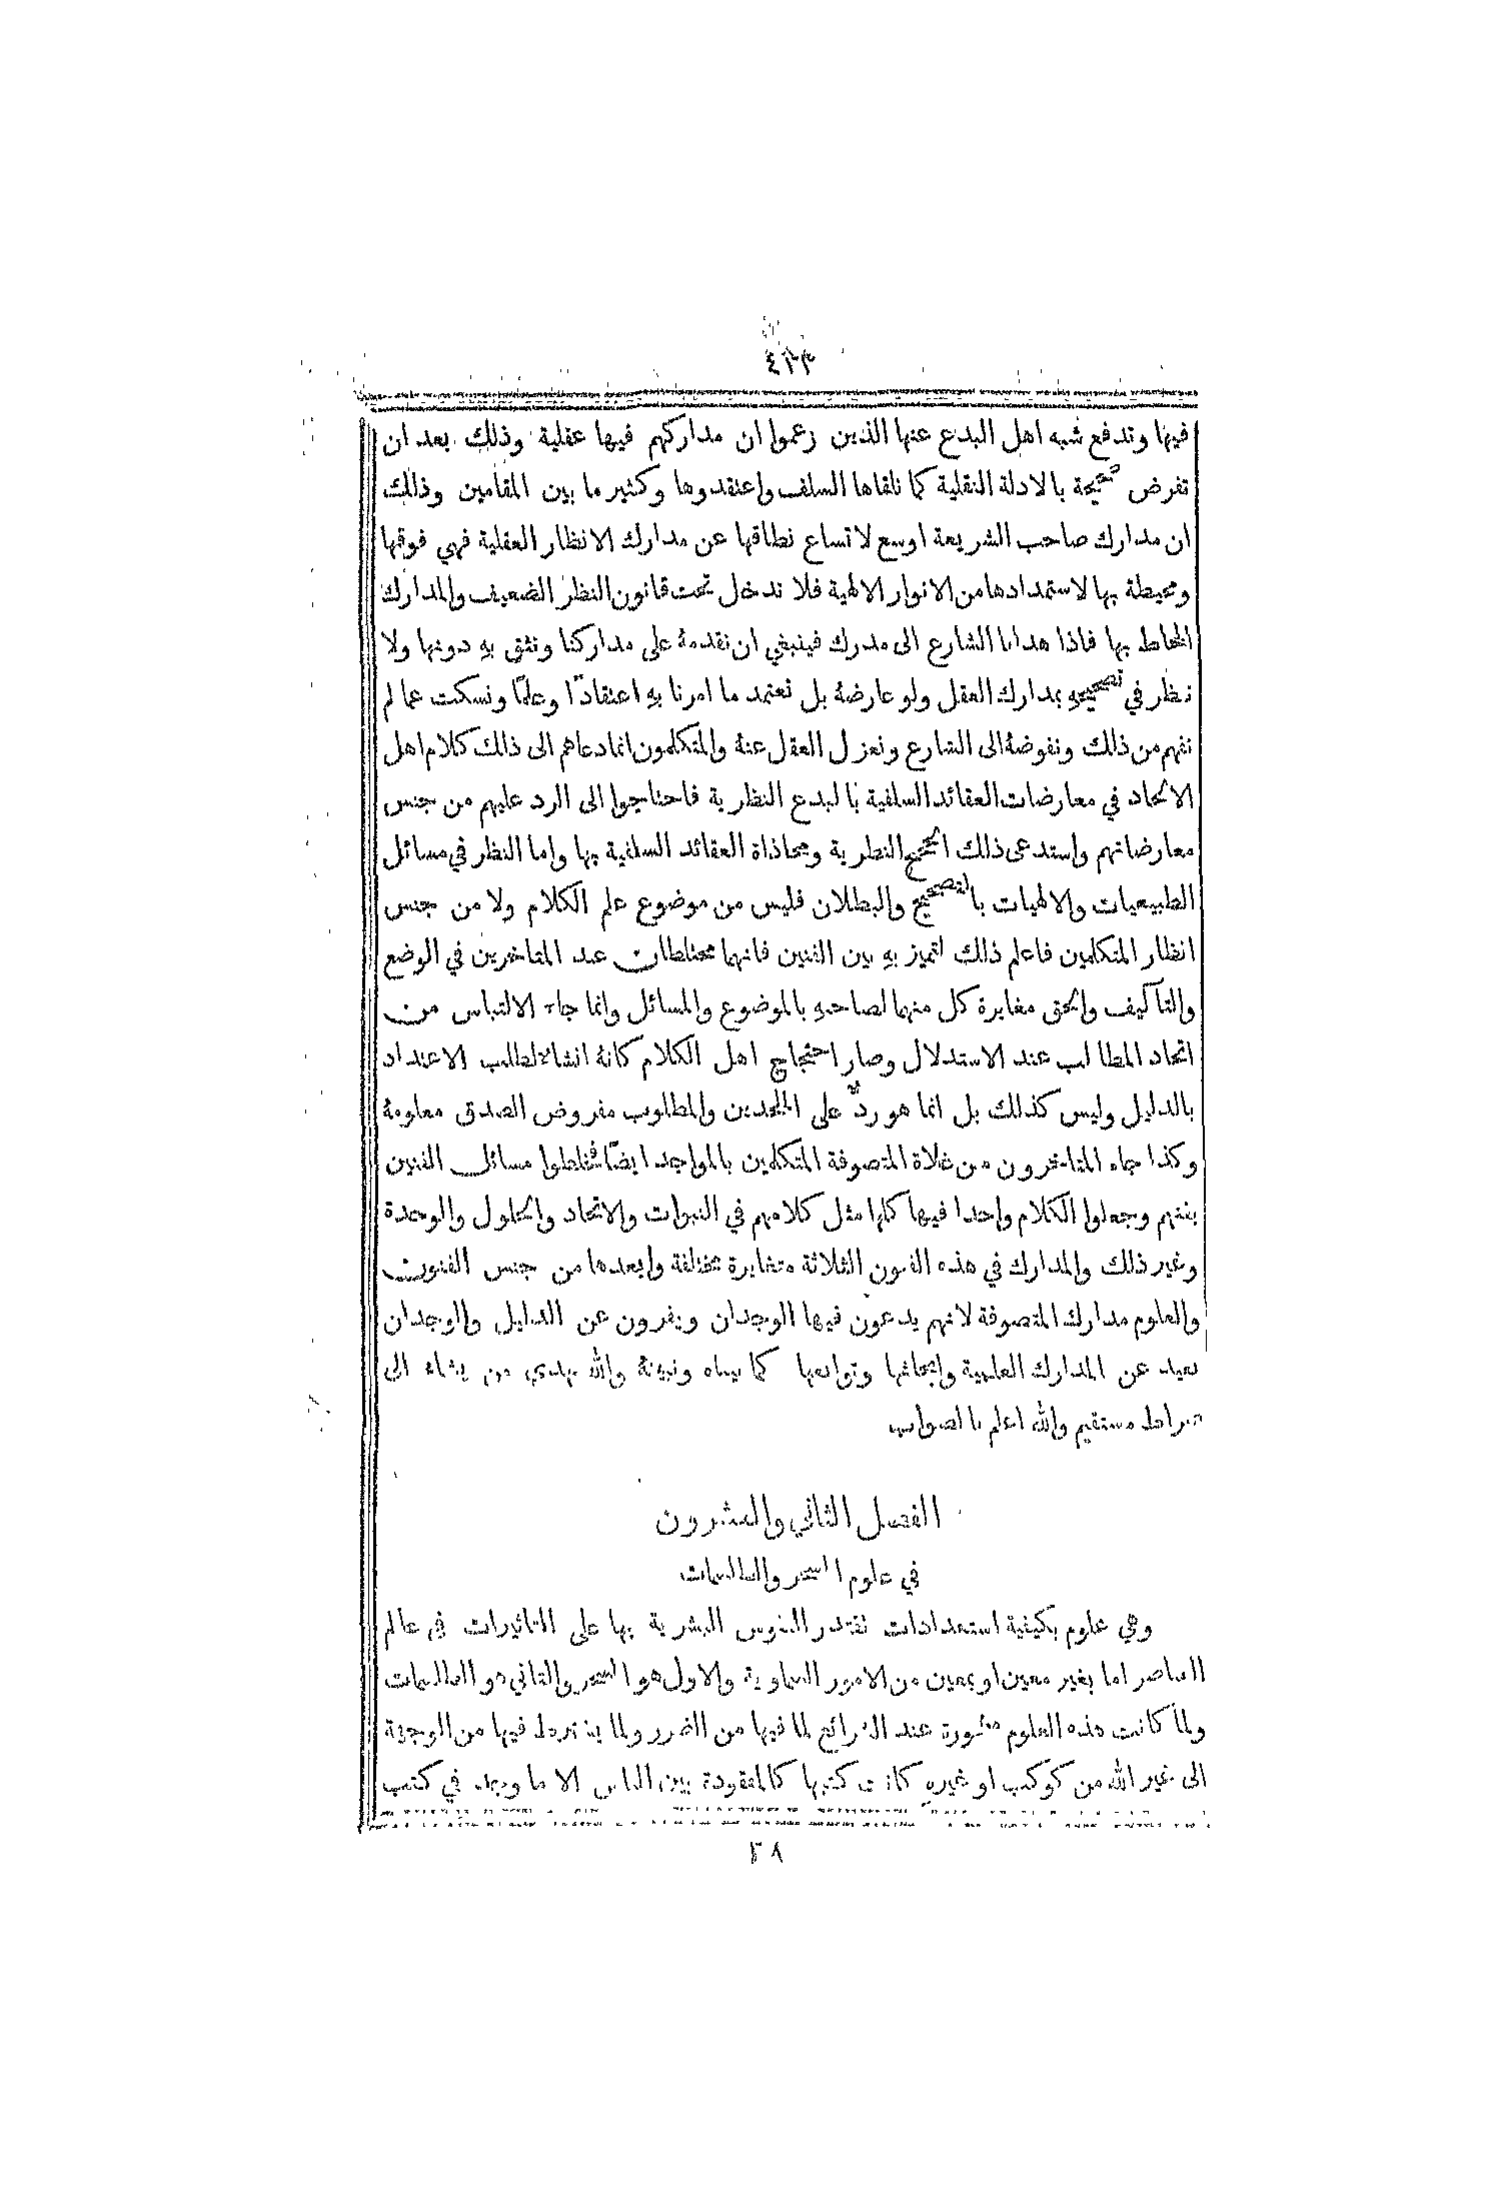 ٤٣٣
فيها وتدفع شبه اهل البدع عنها الذين زعموا ان مداركهم فيها عقلية وذلك بعد ان
تفرض صحيحة بالادلة النقلية كما تلقاها السلف واعتقدوها وكثير ما بين المقامين وذلك
ان مدارك صاحب الشريعة اوسع لاتساع نطاقها عن مدارك الانظار العقلية فهي فوقها
ومحيطة بها لاستمدادها من الانوار الالهية فلا تدخل تحت قانون النظر الضعيف والمدارك
المحاط بها فاذا هدانا الشارع الى مدرك فينبغي ان نقدمهُ على مداركنا ونثق بهِ دونها ولا
ننظر في تصحيحهِ بمدارك العقل ولو عارضهُ بل نعتمد ما امرنا بهِ اعتقادًا وعلمًا ونسكت عما لم
نفهم من ذلك ونفوضهُ الى الشارع ونعزل العقل عنهُ والمتكلمون انما دعاهم الى ذلك كلام اهل
الالحاد في معارضات العقائد السلفية بالبدع النظرية فاحتاجوا الى الرد عليهم من جنس
معارضاتهم واستدعى ذلك الحجج النظرية ومحاذاة العقائد السلفية بها واما النظر في مسائل
الطبيعيات والالهيات بالتصحيح والبطلان فليس من موضوع علم الكلام ولا من جنس
انظار المتكلمين فاعلم ذلك لتميز بهِ بين الفنين فانهما مختلطان عند المتاخرين في الوضع
والتأليف والحق مغايرة كل منهما لصاحبهِ بالموضوع والمسائل وانما جاء الالتباس من
اتحاد المطالب عند الاستدلال وصار احتجاج اهل الكلام كانهُ انشاء لطلب الاعتداد
بالدليل وليس كذلك بل انما هو ردٌّ على الملحدين والمطلوب مفروض الصدق معلومهُ
وكذا جاء المتاخرون من غلاة المتصوفة المتكلمين بالمواجد ايضًا فخلطوا مسائل الفنين
بفنهم وجعلوا الكلام واحدا فيها كلها مثل كلامهم في النبوات والاتحاد والحلول والوحدة
وغير ذلك والمدارك في هذه الفنون الثلاثة متغايرة مختلفة وابعدها من جنس الفنون
والعلوم مدارك المتصوفة لانهم يدعون فيها الوجدان ويفرون عن الدليل والوجدان
بعيد عن المدارك العلمية وابحاثها وتوابعها كما بيناه ونبينهُ والله يهدي من يشاء الى
صراط مستقيم والله اعلم بالصواب
الفصل الثاني والعشرون
في علوم السحر والطلسمات
وهي علوم بكيفية استعدادات تقتدر النفوس البشرية بها على التاثيرات في عالم
العناصر اما بغير معين او بمعين من الامور السماوية والاول هو السحر والثاني هو الطلسمات
ولما كانت هذه العلوم مهجورة عند الشرائع لما فيها من الضرر ولما يشترط فيها من الوجهة
الى غير الله من كوكب او غيرهِ كانت كتبها كالمفقودة بين الناس الا ما وجد في كتب
٢٨